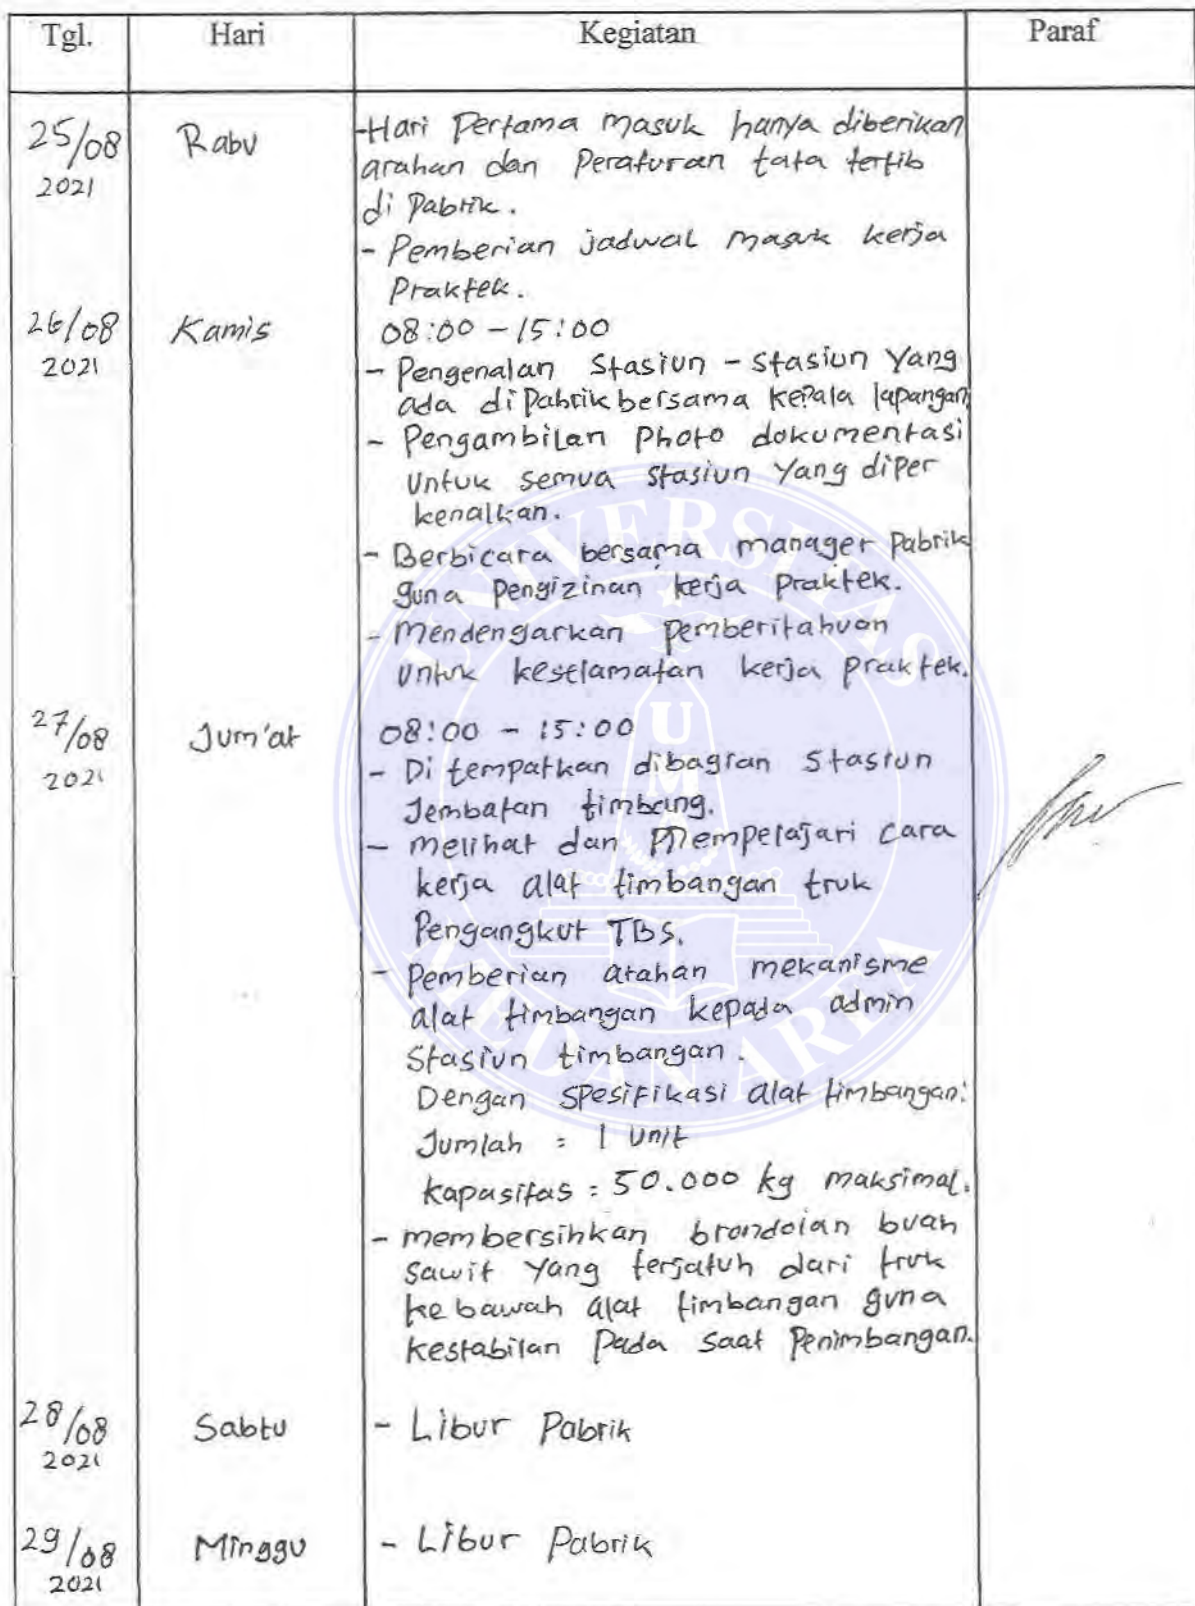 Tgl. Hari Kegiatan Paraf
25/08 Rabu -Hari Pertama masuk hanya diberikan
2021 arahan dan Peraturan tata tertib
di Pabrik.
- Pemberian jadwal masuk kerja
Praktek.
26/08 Kamis 08:00 - 15:00
2021 - Pengenalan Stasiun - stasiun Yang
ada di Pabrik bersama kepala lapangan
- Pengambilan Photo dokumentasi
Untuk semua stasiun Yang diper
kenalkan.
- Berbicara bersama manager Pabrik
guna Pengizinan kerja Praktek.
- Mendengarkan Pemberitahuan
Untuk keselamatan kerja Praktek.
27/08 Jum'at 08:00 - 15:00
2021 - Di tempatkan dibagian Stasiun
Jembatan timbang.
- melihat dan Mempelajari cara
kerja alat timbangan truk
Pengangkut TBS.
- Pemberian arahan mekanisme
alat timbangan kepada admin
Stasiun timbangan.
Dengan Spesifikasi alat timbangan:
Jumlah : 1 Unit
kapasitas : 50.000 kg maksimal.
- membersihkan brondolan buah
Sawit Yang terjatuh dari truk
ke bawah alat timbangan guna
kestabilan Pada saat Penimbangan.
28/08 Sabtu - Libur Pabrik
2021
29/08 Minggu - Libur Pabrik
2021
UNIVERSITAS
UMA
MEDAN AREA